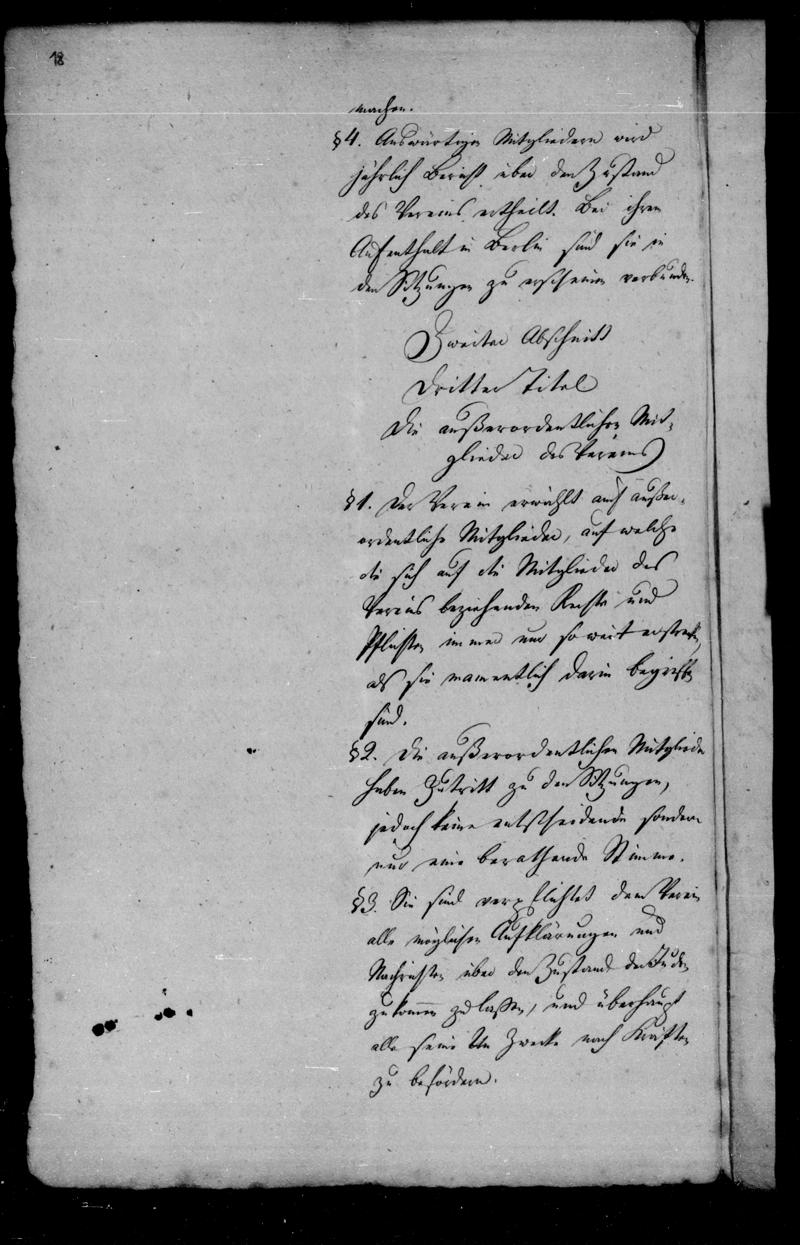 18
machen.
§ 4. Auswärtigen Mitgliedern wird
jährlich Bericht über den Zustand
des Vereins ertheilt. Bei ihrem
Aufenthalt in Berlin sind sie in
den Sitzungen zu erscheinen verbunden.
Zweiter Abschnitt
Dritter Titel
Die außerordentlichen Mit-
glieder des Vereins
§ 1. Der Verein erwählt auch außer-
ordentliche Mitglieder, auf welche
die sich auf die Mitglieder des
Vereins beziehenden Rechte und
Pflichten immer nur so weit erstrecken,
als sie namentlich darin begriffen
sind.
§ 2. Die außerordentlichen Mitglieder
haben Zutritt zu den Sitzungen,
jedoch keine entscheidende sondern
nur eine berathende Stimme.
§ 3. Sie sind verpflichtet dem Verein
alle möglichen Aufklärungen und
Nachrichten über den Zustand der Juden
zukommen zu lassen, und überhaupt
alle seine Zwecke nach Kräften
zu befördern.